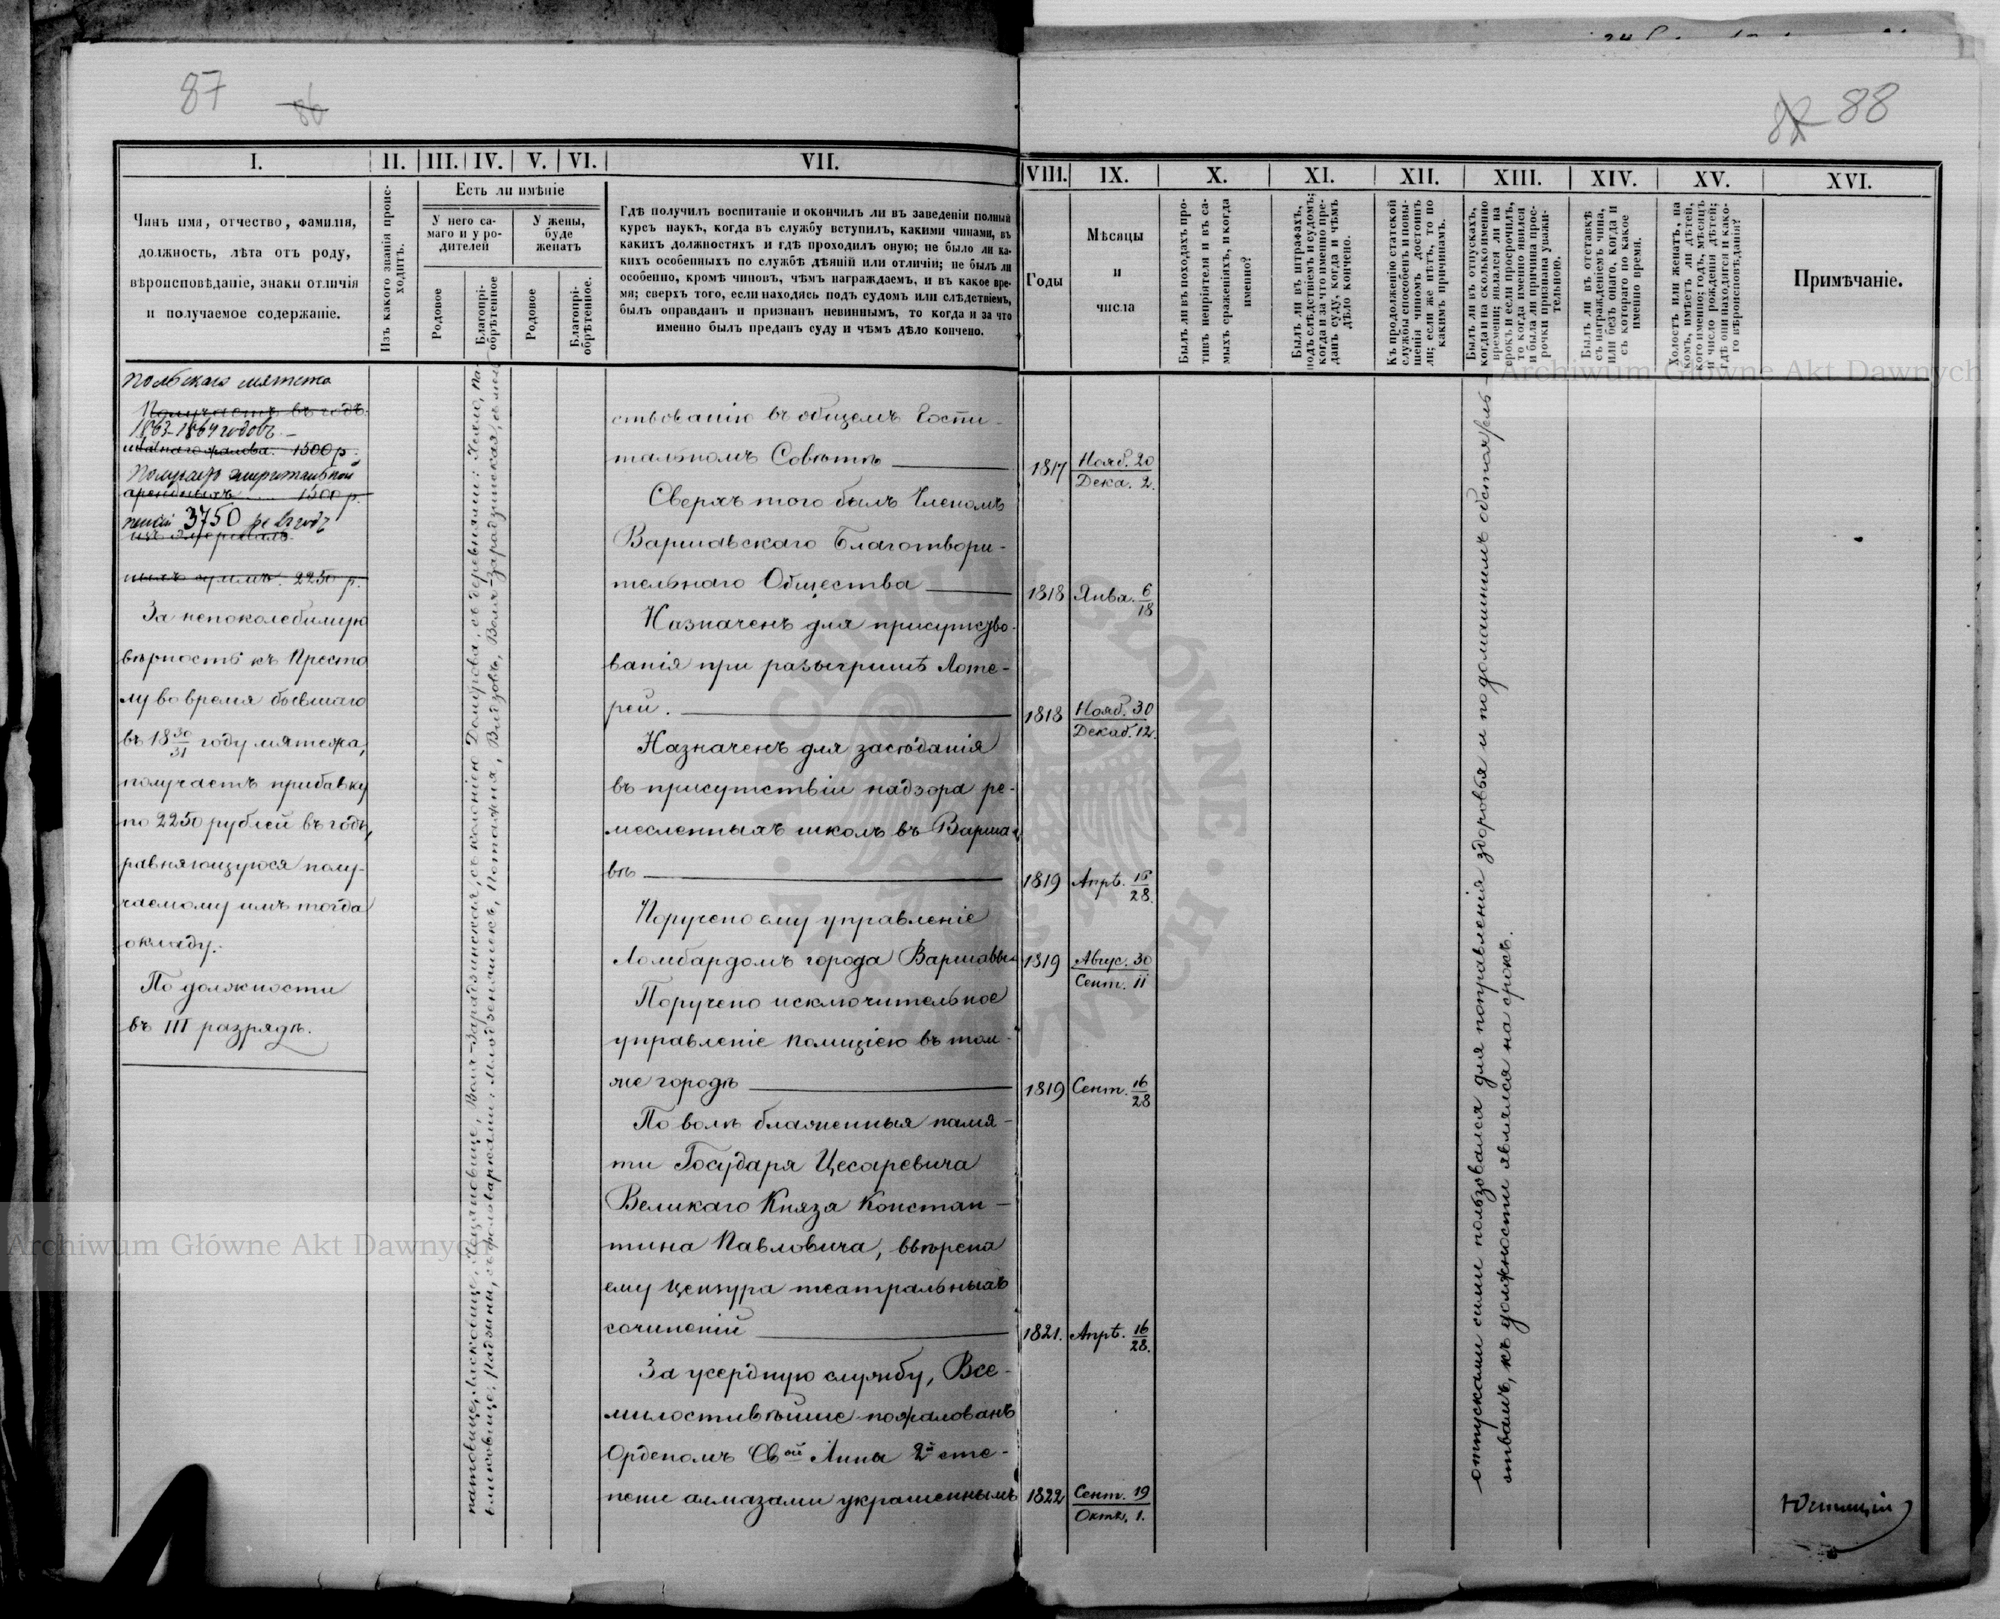 87
86
82 88
I.
II.
III.
IV.
V.
VI.
VII.
VIII.
IX.
X.
XI.
XII.
XIII.
XIV.
XV.
XVI.
Чинъ имя, отчество, фамилія,
должность, лѣта отъ роду,
вѣроисповѣданіе, знаки отличія
и получаемое содержаніе.
Изъ какого званія проис-
ходитъ.
Есть ли имѣніе
У него са-
маго и у ро-
дителей
У жены,
буде
женатъ
Родовое
Благопрі-
обрѣтенное
Родовое
Благопрі-
обрѣтенное.
Гдѣ получилъ воспитаніе и окончилъ ли въ заведеніи полный
курсъ наукъ, когда въ службу вступилъ, какими чинами, въ
какихъ должностяхъ и гдѣ проходилъ оную; не было ли ка-
кихъ особенныхъ по службѣ дѣяній или отличій; не былъ ли
особенно, кромѣ чиновъ, чѣмъ награждаемъ, и въ какое вре-
мя; сверхъ того, если находясь подъ судомъ или слѣдствіемъ,
былъ оправданъ и признанъ невиннымъ, то когда и за что
именно былъ преданъ суду и чѣмъ дѣло кончено.
Годы
Мѣсяцы
и
числа
Былъ ли въ походахъ про-
тивъ непріятеля и въ са-
мыхъ сраженіяхъ, и когда
именно?
Былъ ли въ штрафахъ,
подъ слѣдствіемъ и судомъ;
когда и за что именно пре-
данъ суду, когда и чѣмъ
дѣло кончено.
Къ продолженію статской
службы способенъ и повы-
шенія чиномъ достоинъ
ли; если же нѣтъ, то по
какимъ причинамъ.
Былъ ли въ отпускахъ,
когда и на сколько именно
времени; являлся ли на
срокъ и если просрочилъ,
то когда именно явился
и была ли причина прос-
рочки признана уважи-
тельною.
Былъ ли въ отставкѣ
съ награжденіемъ чина,
или безъ онаго, когда и
съ котораго по какое
именно время.
Холостъ или женатъ, на
комъ, имѣетъ ли дѣтей,
кого именно; годъ, мѣсяцъ
и число рожденія дѣтей;
гдѣ они находятся и како-
го вѣроисповѣданія?
Примѣчаніе.
Польскаго мятежа
Получаетъ въ годъ
1863-1864 годовъ.
штатнаго жалов. 1500 р.
Получаетъ эмеритальной
арендныхъ ..... 1500 р.
пенсіи 3750 р. въ годъ
изъ эмериталь
ныхъ суммъ. 2250 р.
За непоколебимую
вѣрность къ Престо
лу во время бывшаго
въ 18 30/31 году мятежа,
получаетъ прибавку
по 2250 рублей въ годъ,
равняющуюся полу-
чаемому имъ тогда
окладу.
По должности
въ III разрядѣ.
ствованію въ общемъ Госпи-
тальномъ Совѣтѣ
1817 Нояб. 20 / Дека. 2.
Сверхъ того былъ Членомъ
Варшавскаго Благотвори-
тельнаго Общества
1818 Янва. 6/18
Назначенъ для присутство-
ванія при разыгришѣ Лоте-
рей.
1818 Нояб. 30 / Декаб. 12.
Назначенъ для засѣданія
въ присутствіи надзора ре-
месленныхъ школъ въ Варша-
вѣ
1819 Апрѣ. 16/28.
Поручено ему управленіе
Ломбардомъ города Варшавы
1819 Авгус. 30 / Сент. 11
Поручено исключительное
управленіе полиціею въ том-
же городѣ
1819 Сент. 16/28
По волѣ блаженныя памя-
ти Государя Цесаревича
Великаго Князя Констан-
тина Павловича, ввѣрена
ему цензура театральныхъ
сочиненій
1821. Апрѣ. 16/28.
За усердную службу, Все-
милостивѣйше пожалованъ
Орденомъ Свой Анны 2й сте-
пени алмазами украшеннымъ
1822 Сент. 19 / Октя. 1.
отпусками сими пользовался для поправленія здоровья и по домашнимъ обстоятель-
ствамъ, къ должности являлся на срокъ.
Archiwum Główne Akt Dawnych
Archiwum Główne Akt Dawnych